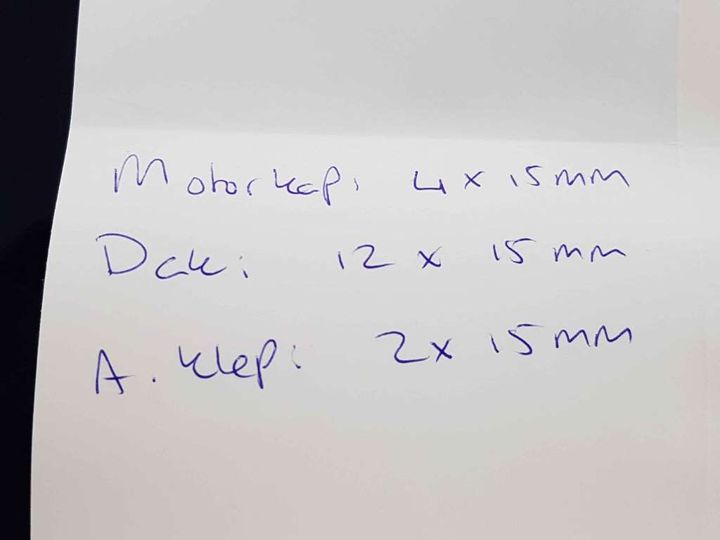 Motorkap: 4 x 15 mm
Dak: 12 x 15 mm
A. klep: 2x 15 mm